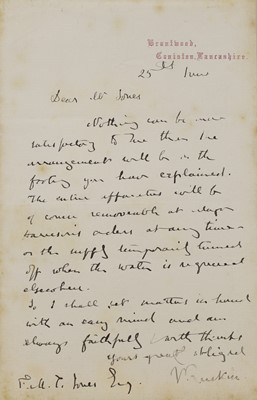 Brantwood,
Coniston, Lancashire.
25th June
Dear Mr Jones
Nothing can be more
satisfactory to me than the
arrangements will be on the
footing you have explained.
The entire apparatus will be
of course removeable at
orders at any time
or the supply temporarily turned
off when the water is required
elsewhere.
So I shall set matters in hand
with an easy mind and am
always faithfully with thanks
yours
F.M.T. Jones Esq. Ruskin